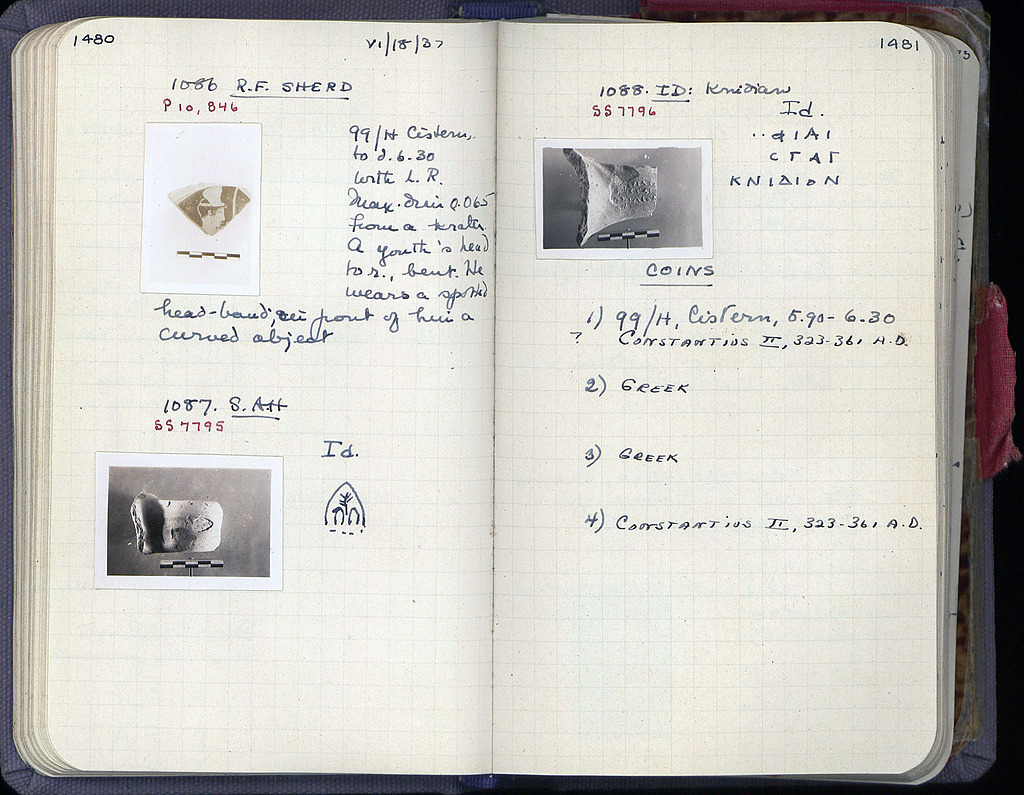 1480
VI/18/37
1086 R.F. SHERD
P 10, 846
99/H Cistern,
to d. 6.30
with L.R.
Max. dim 0.065
From a krater
A youth's head
to r., bent. He
wears a spotted
head-band; in front of him a
curved object
1087. S.AH
SS 7795
Id.
1481
1088. ID: Knidian
SS 7796
Id.
KNIΔION
COINS
1) 99/H, Cistern, 5.90-6.30
? CONSTANTIUS II, 323-361 A.D.
2) GREEK
3) GREEK
4) CONSTANTIUS II, 323-361 A.D.